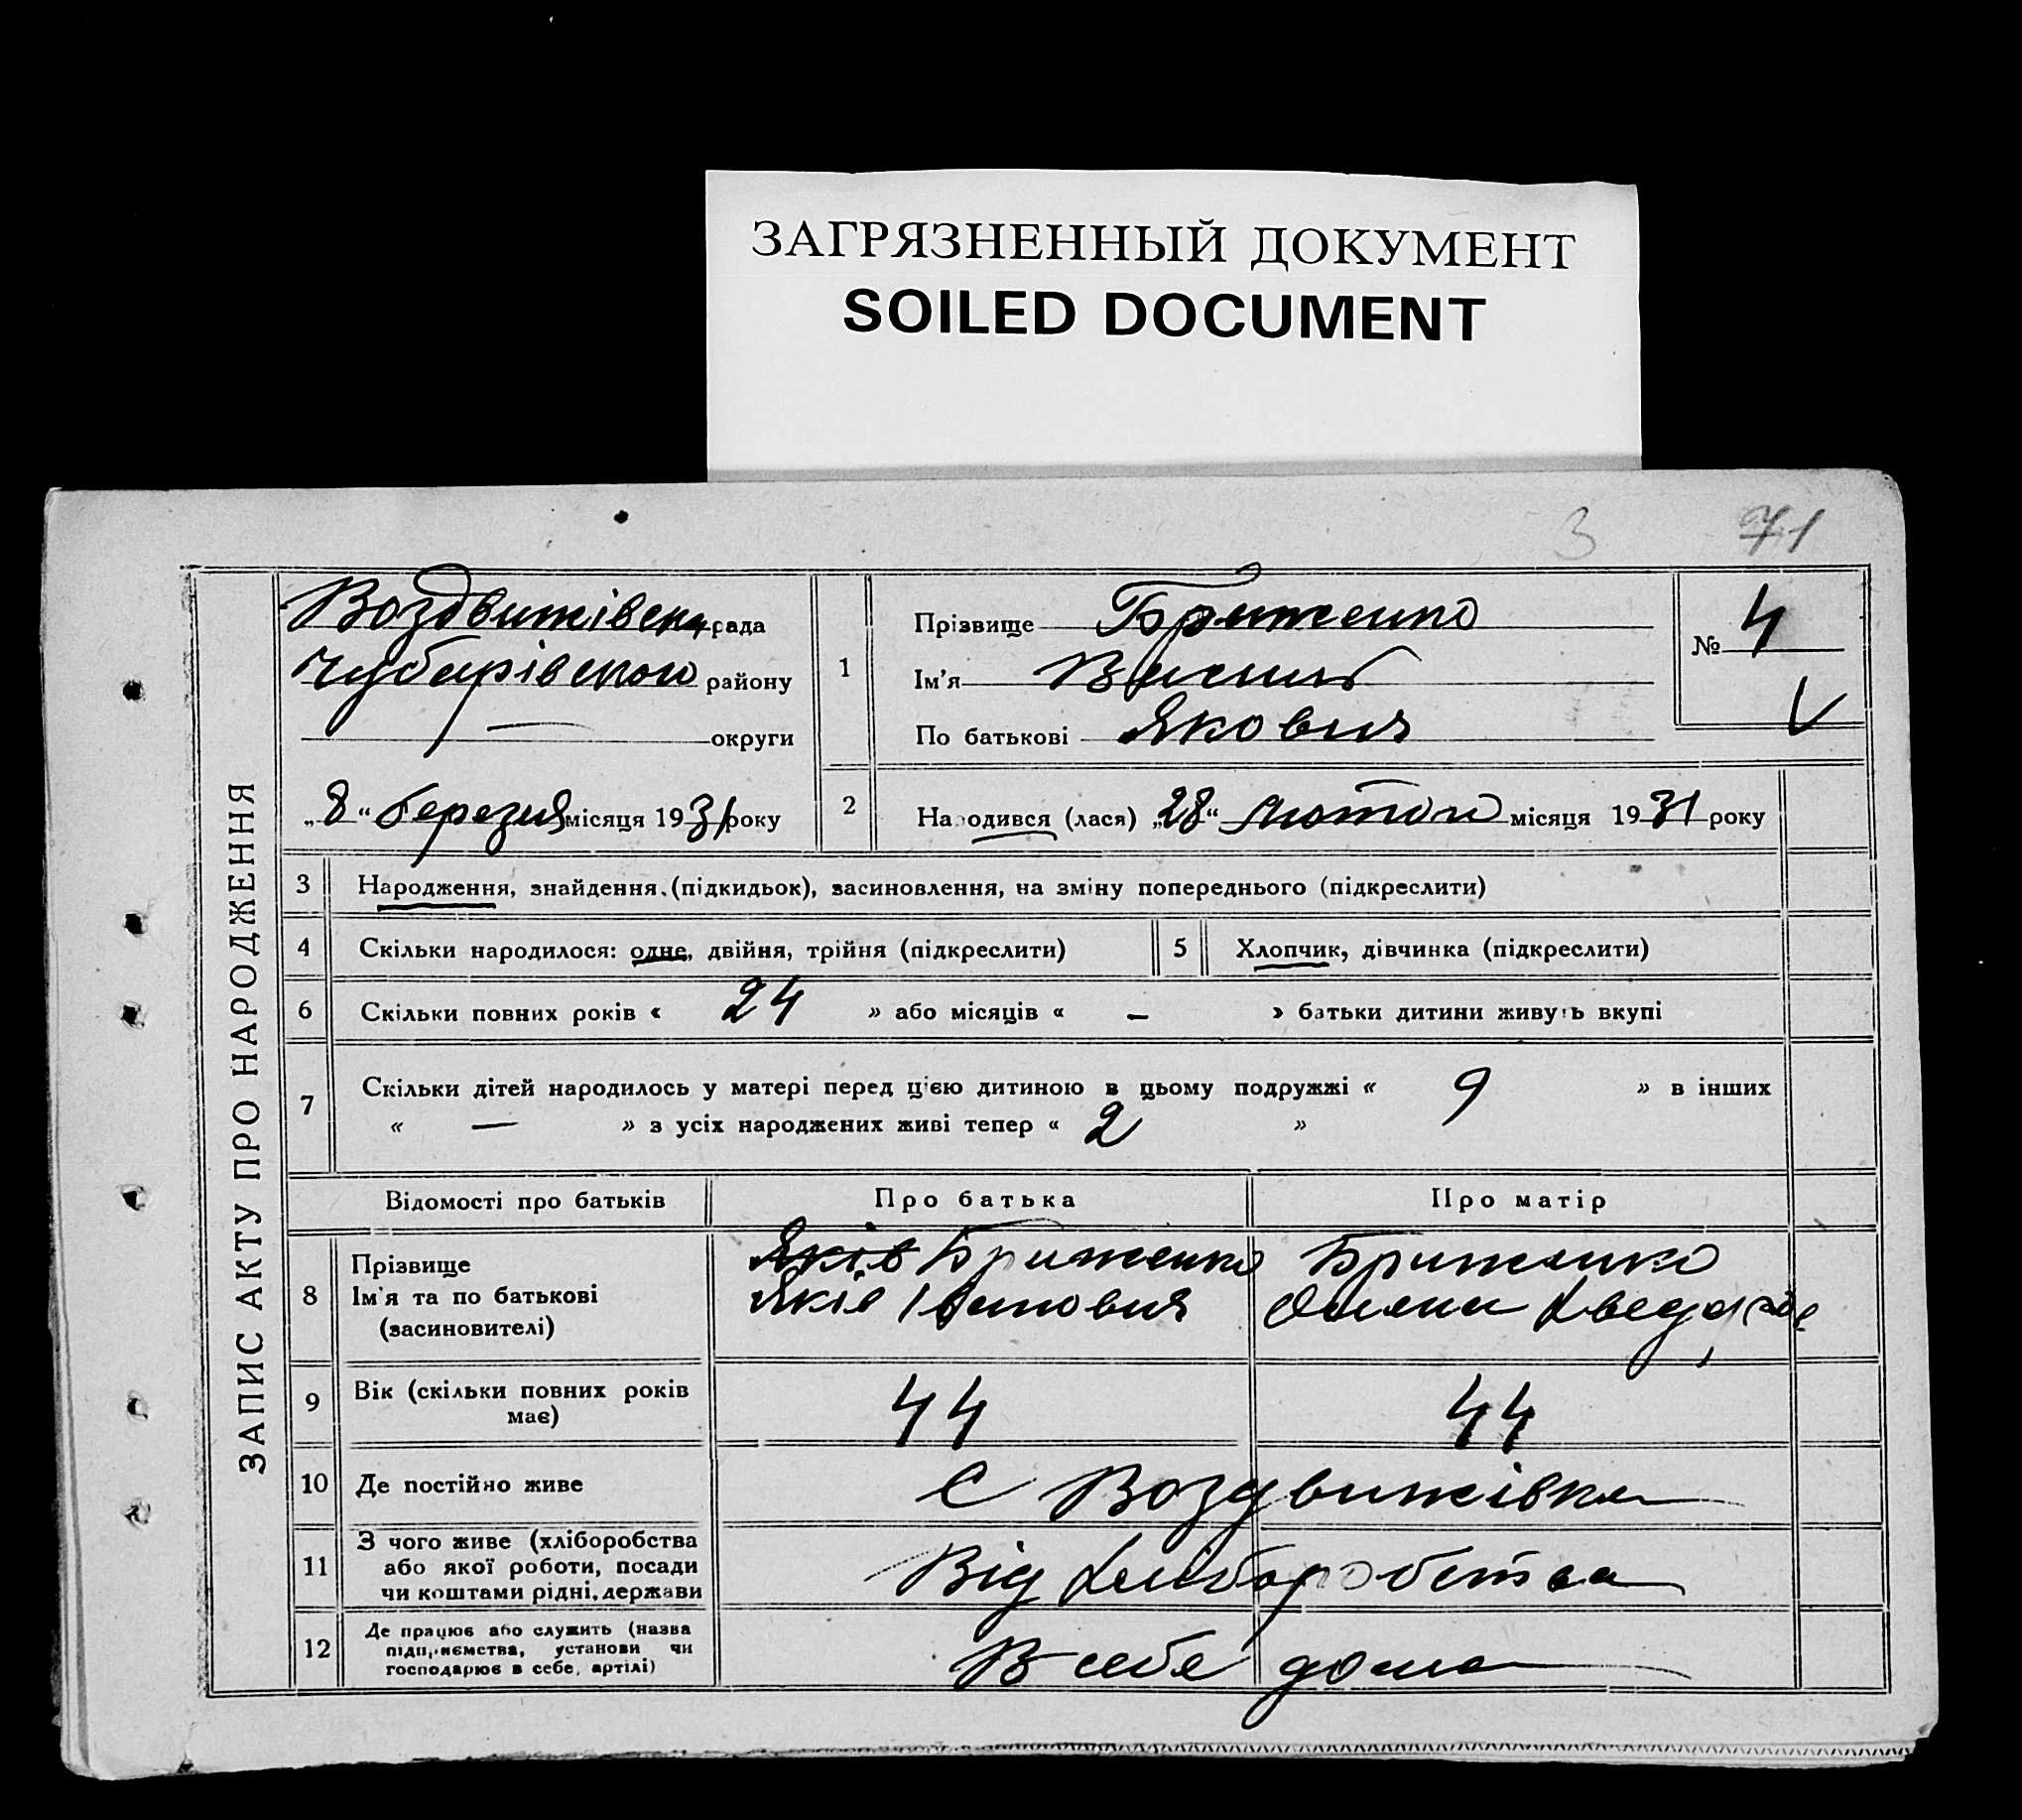 ЗАГРЯЗНЕННЫЙ ДОКУМЕНТ
SOILED DOCUMENT
3 71
ЗАПИС АКТУ ПРО НАРОДЖЕННЯ
Воздвижівська рада
Чубарівського району
— округи
„8“ березня місяця 1931 року
1
Прізвище Бриженко
Ім'я Василь
По батькові Якович
№ 4
2 Народився (лася) „28“ лютого місяця 1931 року
3 Народження, знайдення, (підкидьок), засиновлення, на зміну попереднього (підкреслити)
4 Скільки народилося: одне, двійня, трійня (підкреслити) 5 Хлопчик, дівчинка (підкреслити)
6 Скільки повних років « 24 » або місяців « — » батьки дитини живуть вкупі
7 Скільки дітей народилось у матері перед цією дитиною в цьому подружжі « 9 » в інших
« — » з усіх народжених живі тепер « 2 »
Відомості про батьків Про батька Про матір
8 Прізвище Яків Бриженко Бриженко
Ім'я та по батькові Яків Іванович Олена
(засиновителі)
9 Вік (скільки повних років має) 44 44
10 Де постійно живе С Воздвижівка
11 З чого живе (хліборобства
або якої роботи, посади
чи коштами рідні, держави Від хліборобства
12 Де працює або служить (назва
підприємства, установи чи
господарює в себе, артілі) В себе дома